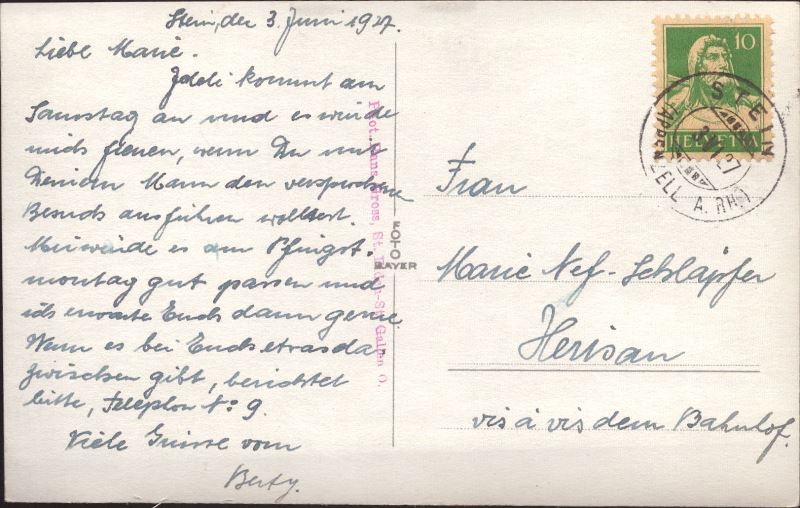 Stein, den 3. Juni 1927.
Liebe Marie.
Ideli kommt am
Samstag an und es würde
mich freuen, wenn Du mit
Deinem Mann den versprochene
Besuch ausführen wolltest.
Mir würde es am Pfingst-
montag gut passen und
ich erwarte Euch dann gerne.
Wenn es bei Euch etwas da-
zwischen gibt, berichtet
bitte, Telephon No 9.
Viele Grüsse vom
Berty.
Phot. Hans Gross, St. Gallen O.
FOTO
BAYER
10
HELVETIA
STEIN
(APPENZELL A. RH.)
Frau
Marie Nef-Schläpfer
Herisau
vis à vis dem Bahnhof.